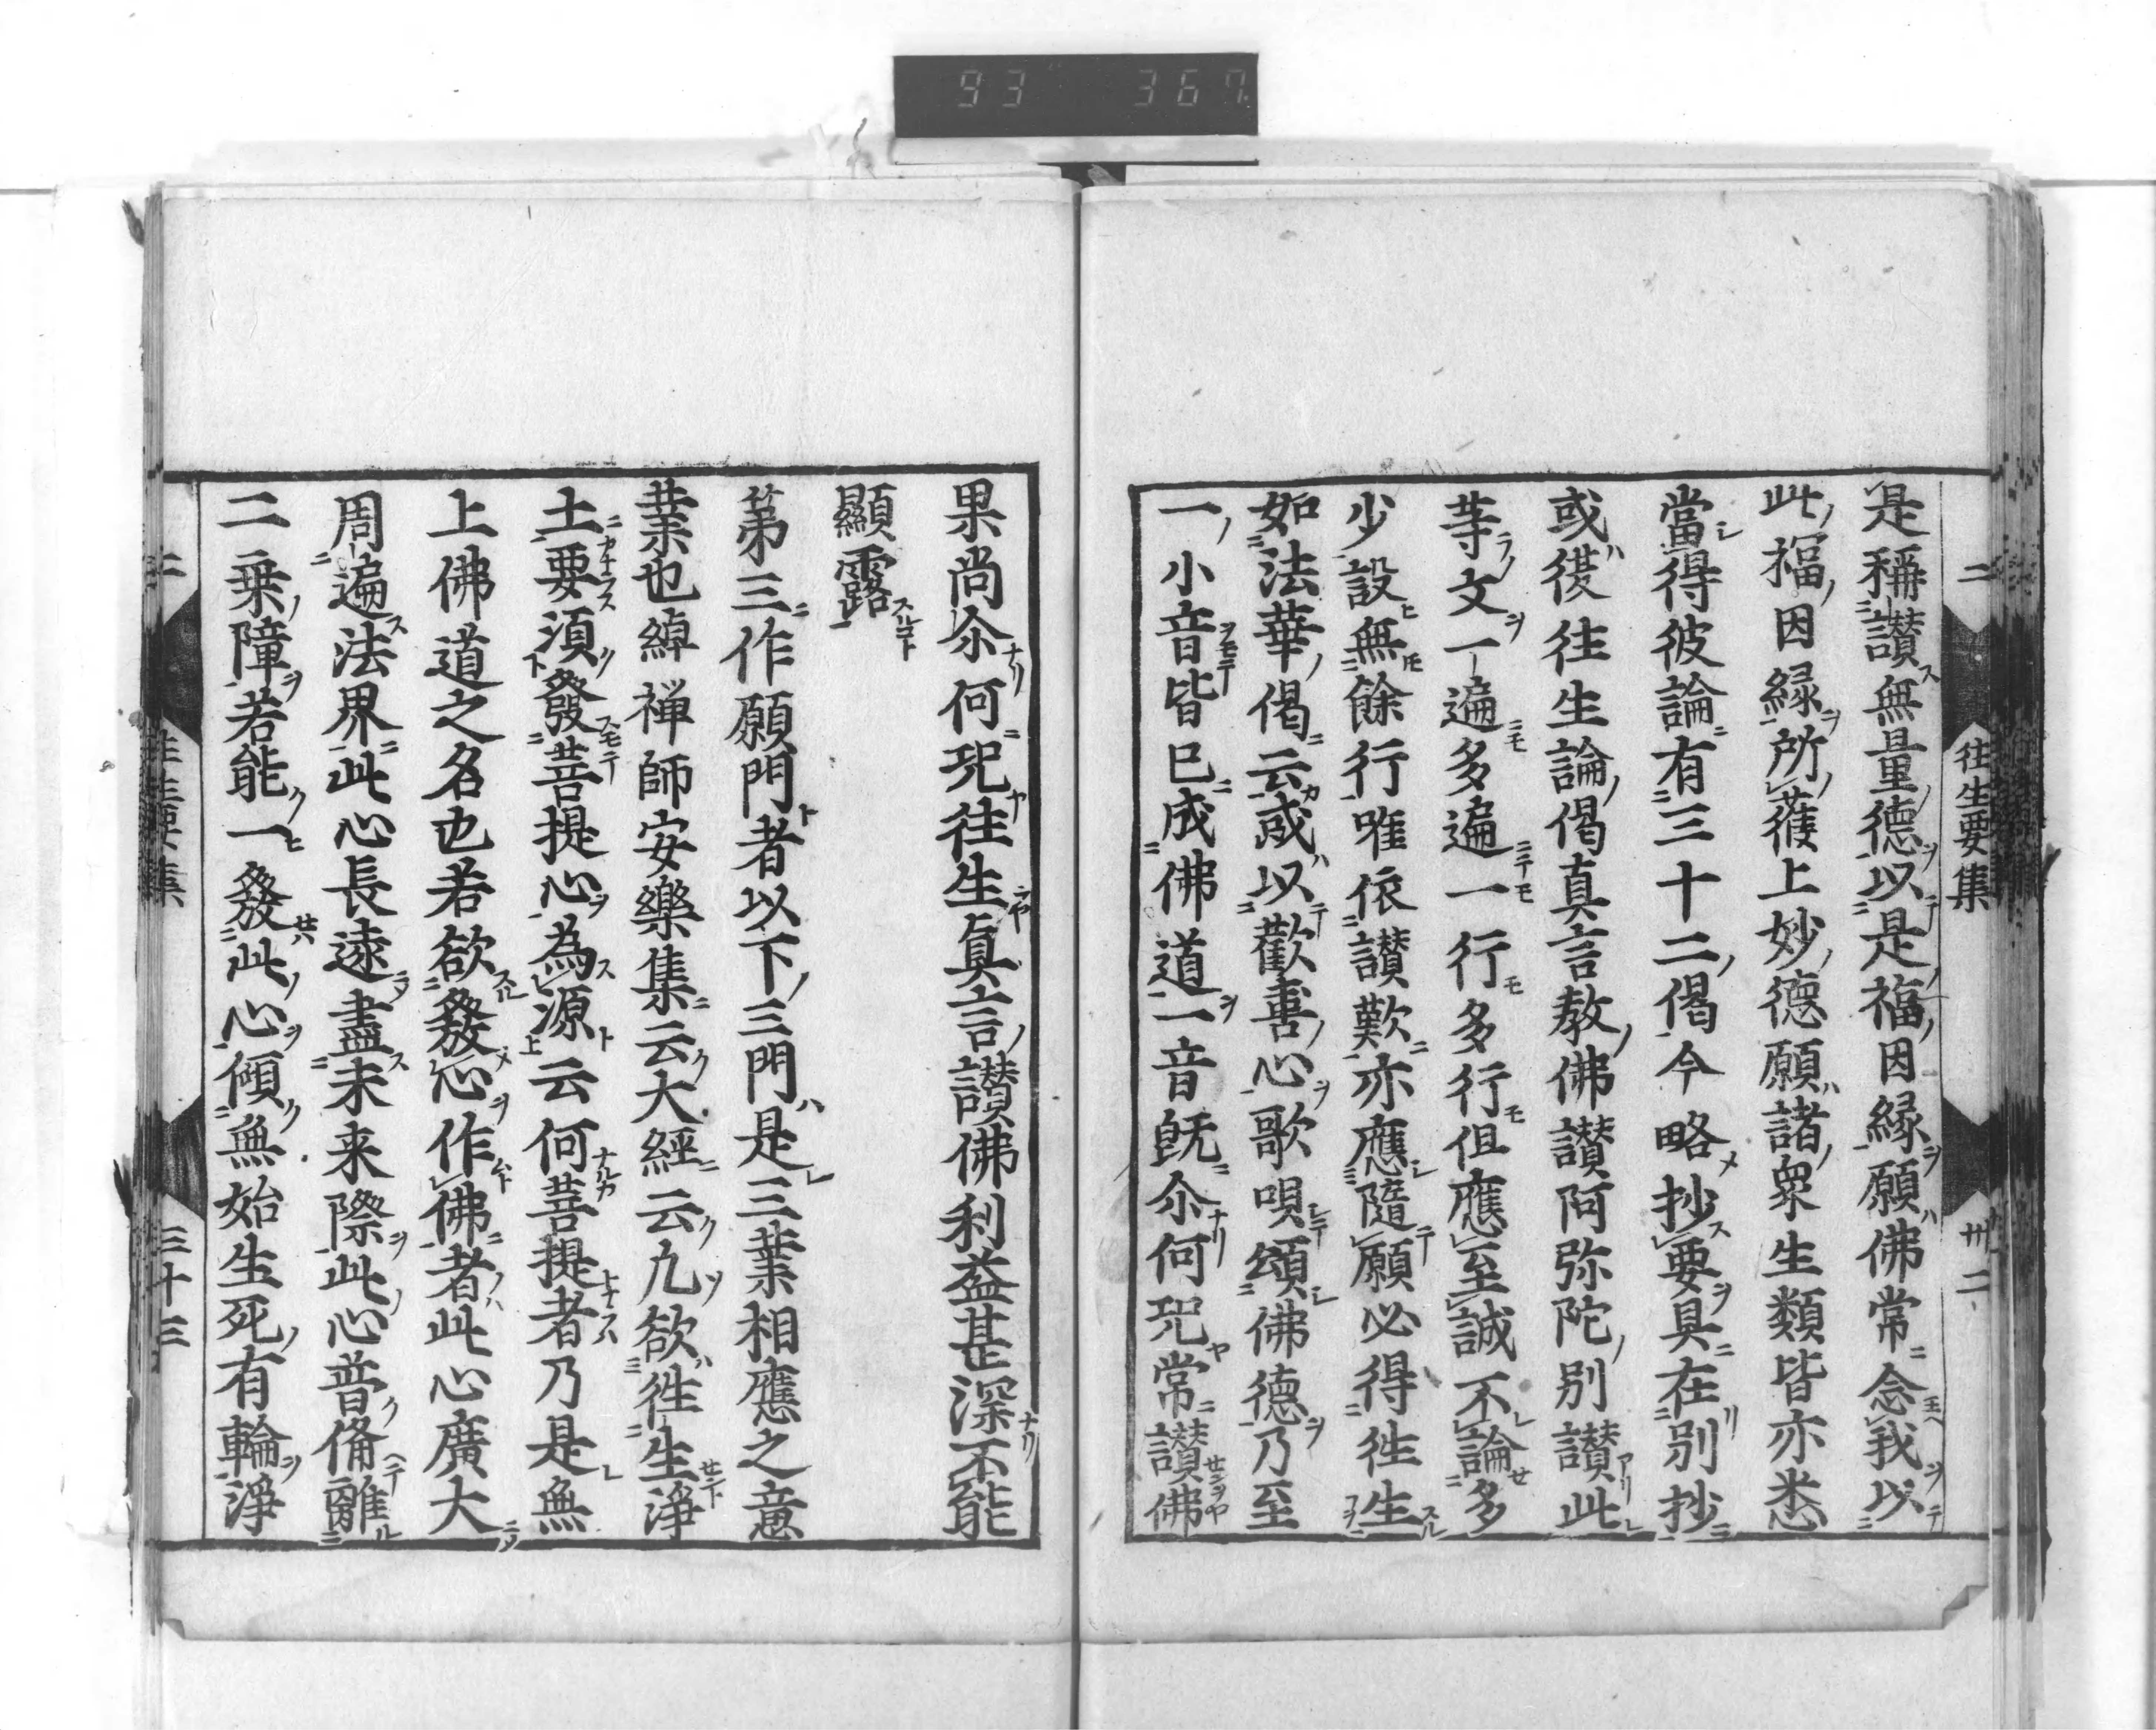 93 367
二 往生要集 卅二
是稱讃無量德以是福因縁願佛常念我以
此福因縁所獲上妙德願諸衆生類皆亦悉
當得彼論有三十二偈今略抄要具在別抄
或復往生論偈真言教佛讃阿弥陀別讃此
等文一遍多遍一行多行但應至誠不論多
少設無餘行唯依讃歎亦應隨願必得往生
如法華偈云或以歡喜心歌唄頌佛德乃至
一小音皆已成佛道一音既尒何況常讃佛
果尚尒何況往生真言讃佛利益甚深不能
顯露
第三作願門者以下三門是三業相應之意
業也綽禅師安樂集云大經云凡欲往生淨
土要須發菩提心為源云何菩提者乃是無
上佛道之名也若欲發心作佛者此心廣大
周遍法界此心長遠盡未来際此心普偹離
二乗障若能一發此心傾無始生死有輪淨
二 往生要集 三十三